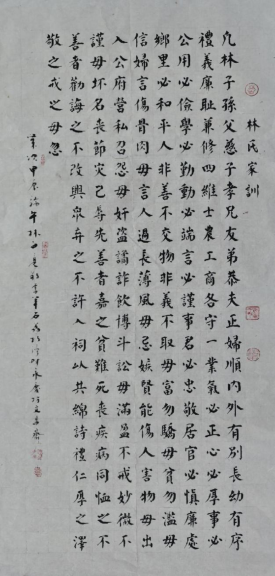 林氏家訓
凡林子孫父慈子孝兄友弟恭夫正婦順內外有別長幼有序
禮義廉恥兼修四維士農工商各守一業氣必正心必厚事必
公用必儉學必勤動必端言必謹事君必忠敬居官必慎廉處
鄉里必和平人非善不交物非義不取毋富勿驕毋貧勿濫毋
信婦言傷骨肉毋言人過長薄風毋忌嫉賢能傷人害物毋出
入公府營私召怨毋奸盜譎詐飲博斗訟毋滿盈不戒妙微不
謹毋坏名喪節災己辱先善者嘉之貧難死喪疾病同恤之不
善者勸誨之不改與眾弃之不許入祠以共綿詩禮仁厚之澤
敬之戒之毋忽
歲次甲辰端午林